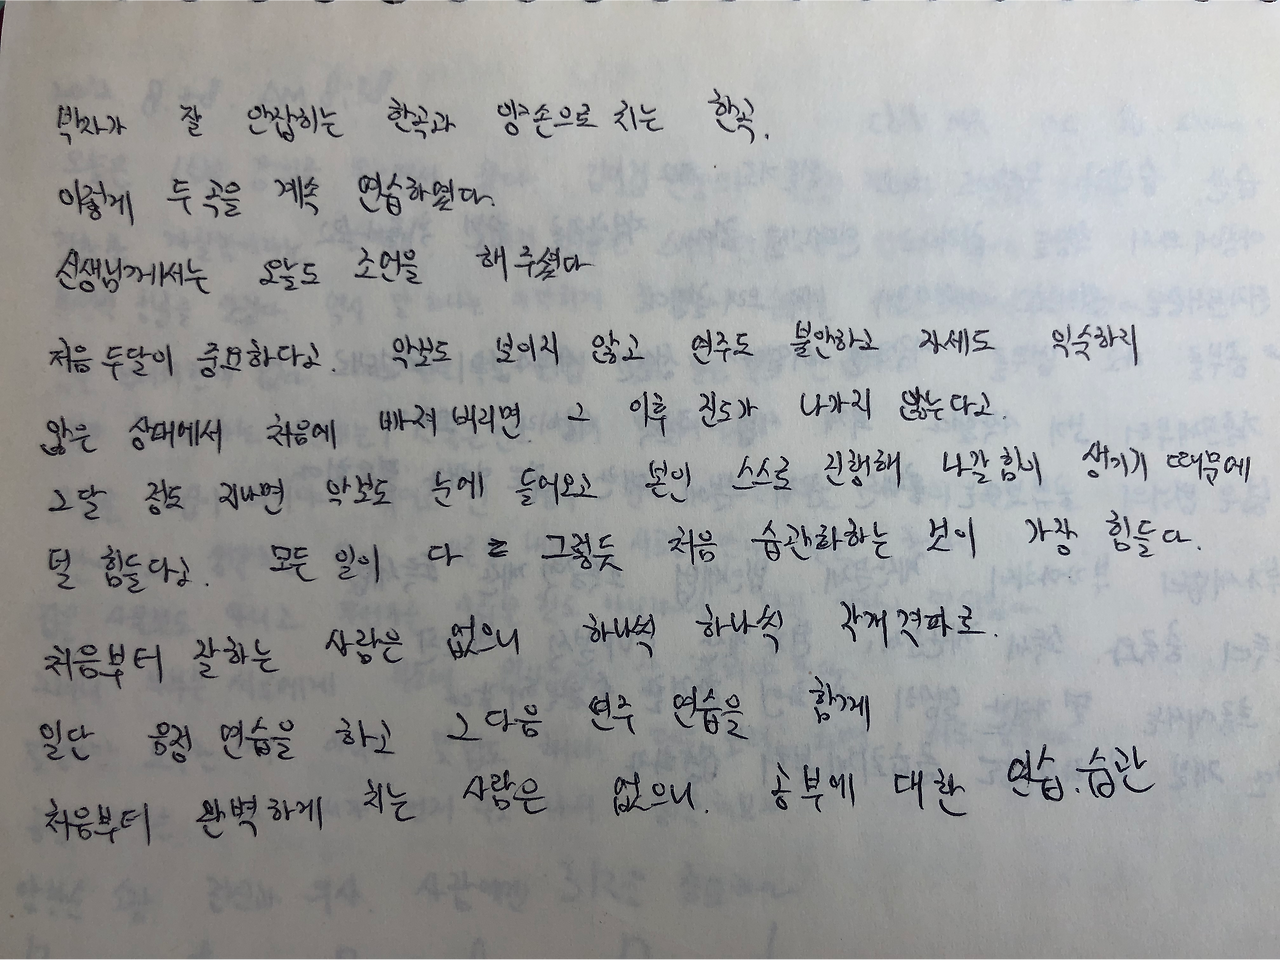 박자가 잘 안잡히는 한곡과 양손으로 치는 한곡.
이렇게 두 곡을 계속 연습하였다.
선생님께서는 오늘도 조언을 해 주셨다
처음 두달이 중요하다고. 악보도 보이지 않고 연주도 불안하고 자세도 익숙하지
않은 상태에서 처음에 빠져 버리면 그 이후 진도가 나가지 않는다고.
그달 정도 지나면 악보도 눈에 들어오고 본인 스스로 진행해 나갈 힘이 생기기 때문에
덜 힘들다고. 모든 일이 다 그렇듯 처음 습관화하는 것이 가장 힘들다.
처음부터 잘하는 사람은 없으니 하나씩 하나씩 각개격파로.
일단 음정 연습을 하고 그 다음 연주 연습을 함께
처음부터 완벽하게 치는 사람은 없으니. 공부에 대한 연습.습관